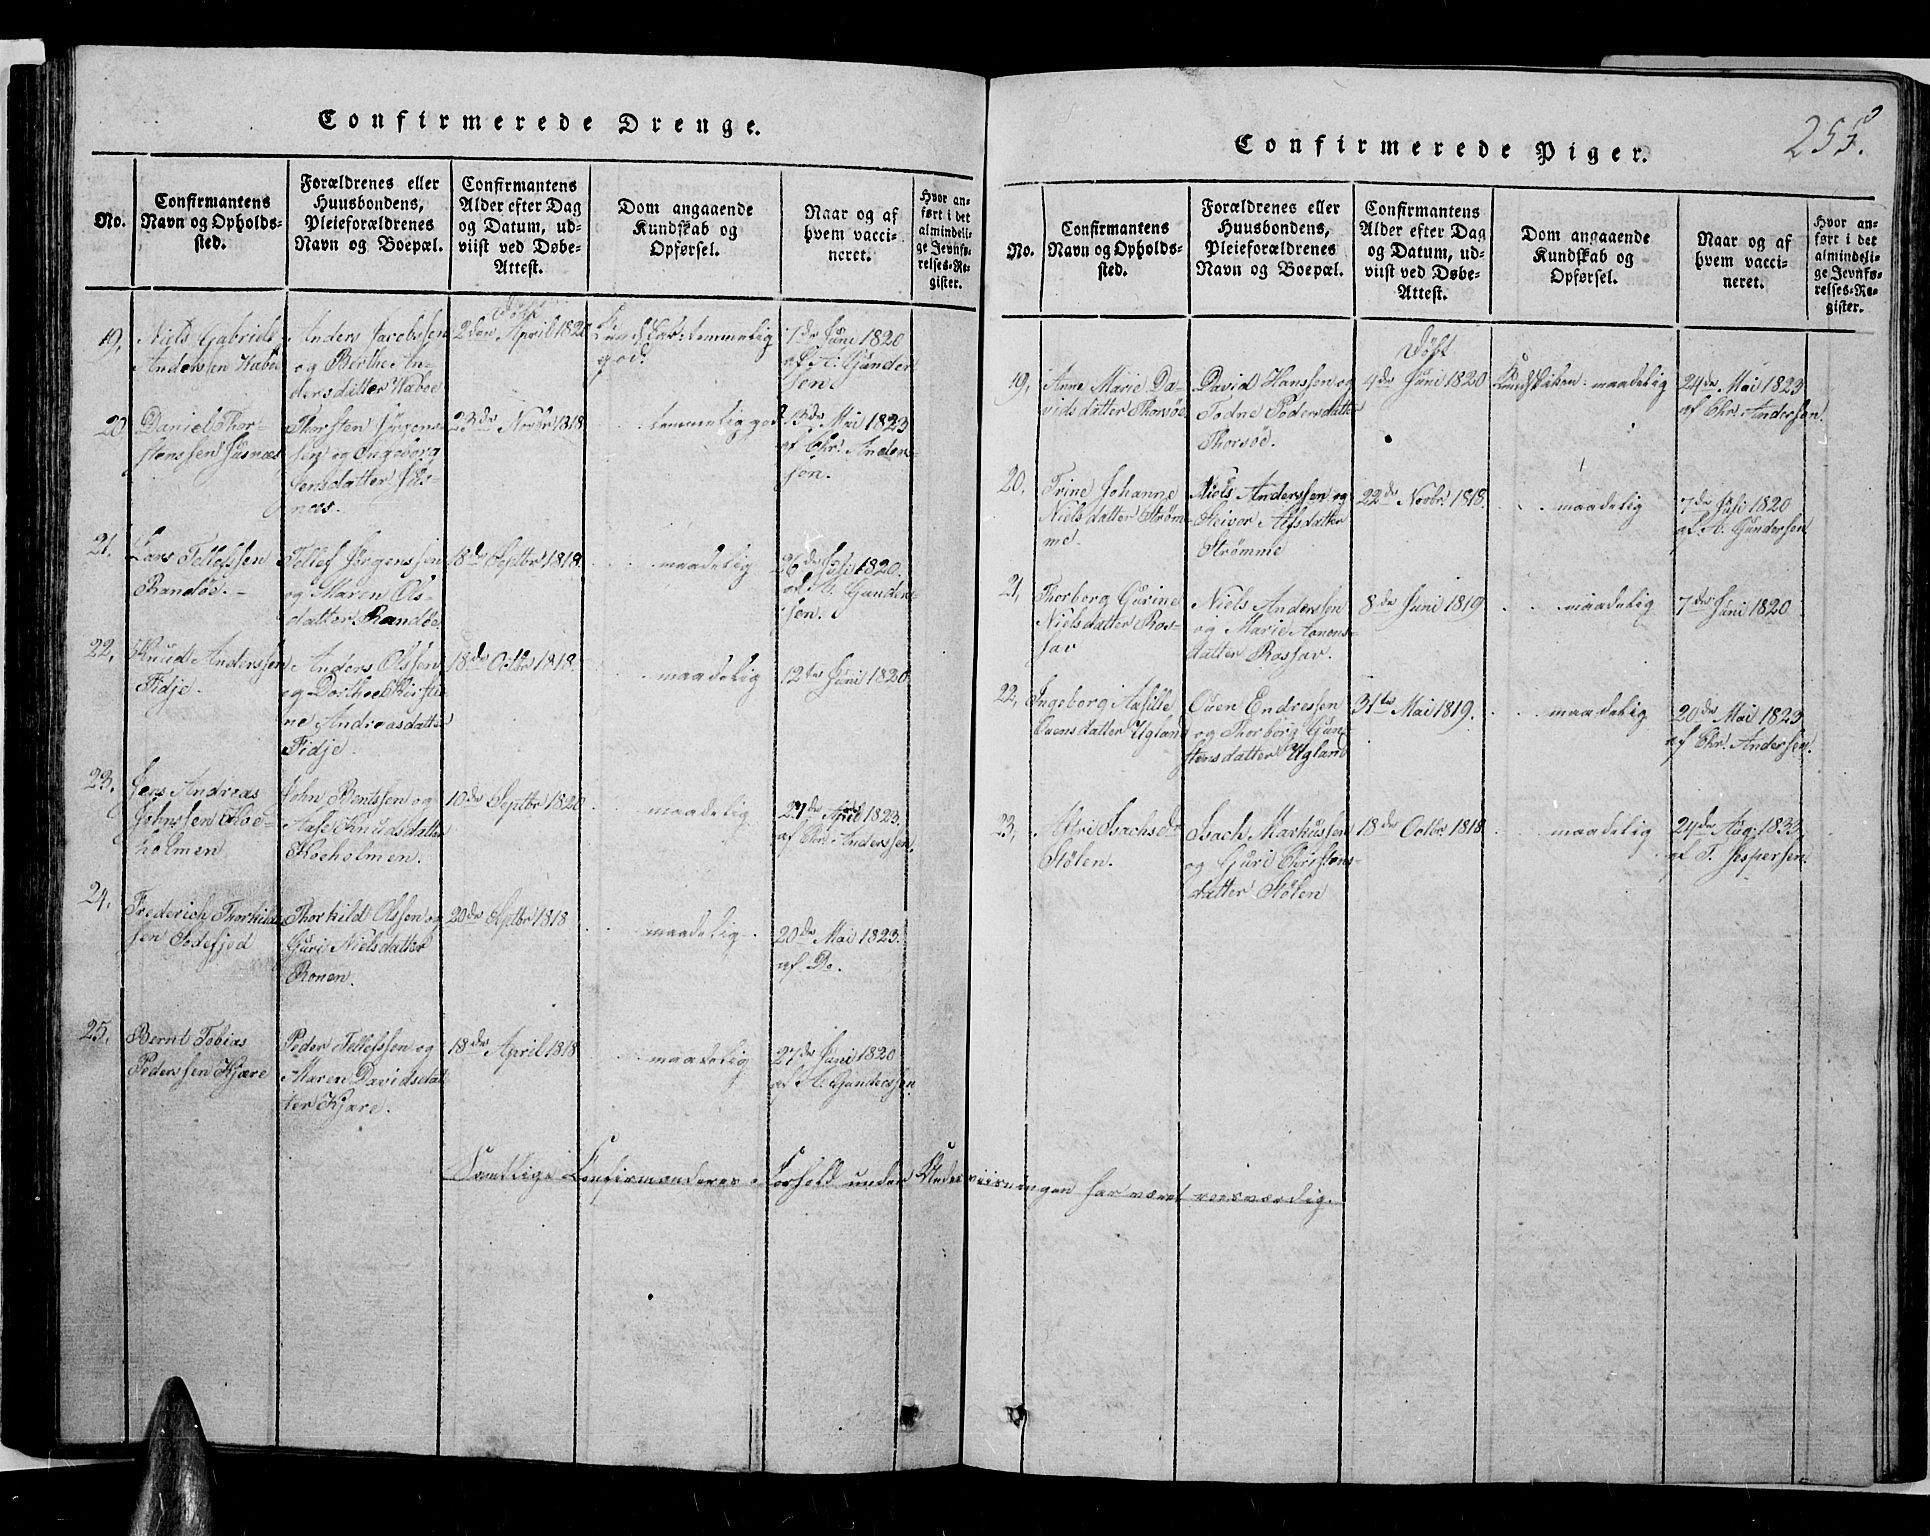 Confirmerede Drenge.
No.
Confirmantens
Navn og Opholds-
sted.
Forældrenes eller
Huusbondens,
Pleieforældrenes
Navn og Boepæl.
Confirmantens
Alder efter Dag
og Datum, ud-
viist ved Døbe-
Attest.
Dom angaaende
Kundskab og
Opførsel.
Naar og af
hvem vacci-
neret.
Hvor an-
ført i det
almindeli-
ge Jevnfø-
relses-Re-
gister.
19.
Niels Gabriel
Anderssen
Anders Jacobssen
og Berthe An-
dersdatter
døbt
2den April 1820
Kundskab: temmelig
god.
1de Juni 1820
af A. Gunder
sen
20
Daniel Thor-
stenssen Jusnæs
Thorsten Jørgens-
sen og Ingeborg
Jensdatter Jus-
næs.
23de Novbr 1818
temmelig god
13de Mai 1823
af Chr. Anders-
sen.
21.
Lars Tellefssen
Randøe.
Tellef Jørgenssen
og Maren Ols-
datter Randøe
18de Septbr 1818
maadelig
26de Juli 1820.
af A. Gunder-
sen.
22.
Knud Anderssen
Fidje.
Anders Olssen
og Dorthea Kirsti-
ne Andreasdatter
Fidje.
18de Octbr 1818.
maadelig
12te Juni 1820
23.
Jens Andreas
Johnssen Koe-
holmen
John Bentssen og
Aase Knudsdatter
Koeholmen.
10de Septbr 1820
maadelig
27de April 1823.
af Chr. Anderssen.
24.
Frederich Thorkilds
sen Todefjed
Thorkild Olssen og
Guri Nielsdatter
Ronen.
20de Septbr 1818
maadelig
20de Mai 1823.
af Do.
25.
Bernt Tobias
Pederssen Kjære
Peder Tellefssen og
Maren Davidsdat
ter Kjære.
18de April 1818
maadelig
27de Juni 1820
af A. Gunderssen
Samtlige Confirmanderes Forhold under Underviisningen har været roesværdig.
255.
Confirmerede Piger.
No.
Confirmantens
Navn og Opholds-
sted.
Forældrenes eller
Huusbondens,
Pleieforældrenes
Navn og Boepæl.
Confirmantens
Alder efter Dag
og Datum, ud-
viist ved Døbe-
Attest.
Dom angaaende
Kundskab og
Opførsel.
Naar og af
hvem vacci-
neret.
Hvor an-
ført i det
almindeli-
ge Jevnfø-
relses-Re-
gister.
19.
Anne Marie Da-
vidsdatter Thorsøe
David Hanssen og
Todne Pedersdatter
Thorsøe.
Døbt
4de Juni 1820
maadelig
24de Mai 1823
af Chr. Andersen.
20.
Trine Johanne
Nielsdatter Strøm-
me.
Niels Anderssen og
Reivor Alfsdatter
Strømme
22de Novbr 1818.
maadelig
7de Juli 1820
af A. Gundersen
21.
Thorborg Gurine
Nielsdatter Ros-
sav
Niels Anderssen
og Marie Aanons-
datter Rossav.
8de Juni 1819
maadelig
7de Juni 1820
22.
Ingeborg Axsille
Ouensdatter Ugland
Ouen Endressen
og Thorborg Gun-
stensdatter Ugland
31te Mai 1819.
maadelig
20de Mai 1823
af Chr. Andersen.
23.
Stølen.
Isach Markussen
og Guri Christens-
datter Stølen
18de Octbr 1818
maadelig
24de Aug. 1833
af T. Jespersen.